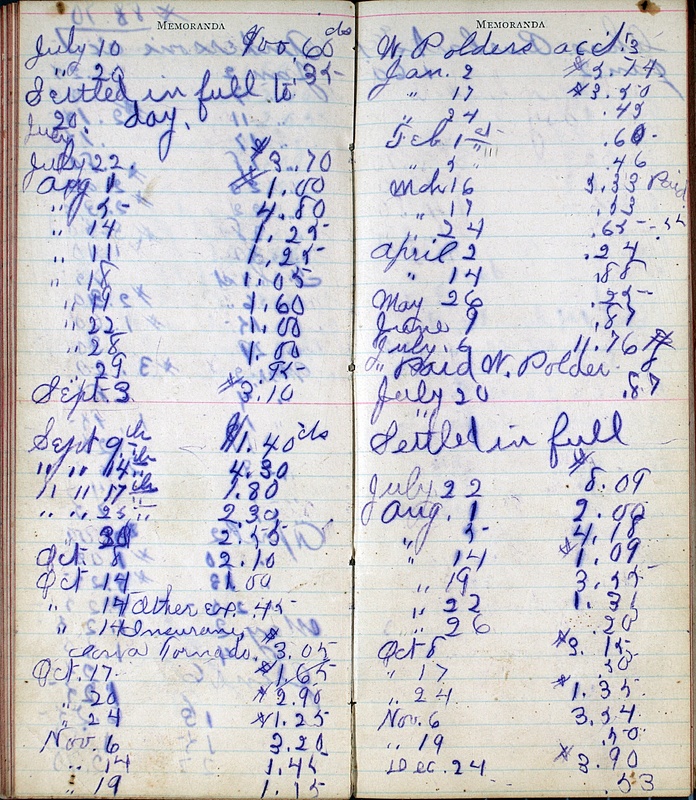 MEMORANDA
July 10 $00,60 cts
" 20 .35
Settled in full to
July 20. day.
July 22. $3.70
Aug 1 $1.00
" 5 4.80
" 14 1.25
" 11 1.25
" 18 1.05
" 19 1.60
" 22 1.00
" 28 1.00
" 29
Sept. 3 $3.10
Sept 9th $1.40 cts
" " 14th 4.30
" " 17th 1.80
" " 25 " 2.30
30 2.55
Oct. 8 2.10
Oct 14 1.00
" 14 Other exp. .45
" 14 Insurance
Tornado. 3.05
Oct. 17. $1.65
" 20 $2.90
" 24 $1.25
Nov. 6 3.20
" 14 1.45
" 19 1.15
MEMORANDA
W. Polders acct.'s
Jan. 2 $3.74
" 17 $3.50
" 24 .45
Feb 1st .60
" 5 " .46
Mch 16 3.33 Paid
" 17 .53
" 24 .65
April 2 .24
" 14 .88
May 26 .25
June 9 .87
July. 6 11.76
" Paid W. Polder
July 20 .87
Settled in full
July 22 $8.09
Aug. 1 2.00
" 5 4.18
" 14 $1.09
" 19 3.55
" 22 1.31
" 26 .20
Oct 8 $3.15
" 17 .50
" 24 $1.35
Nov. 6 3.54
" 19 .50
Dec. 24 $3.90
.53